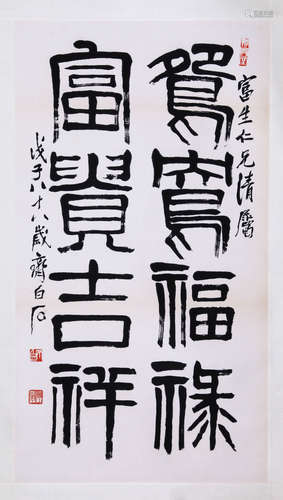 富生仁兄清屬
鴛鴦福祿
富貴吉祥
戊子八十八歲齊白石